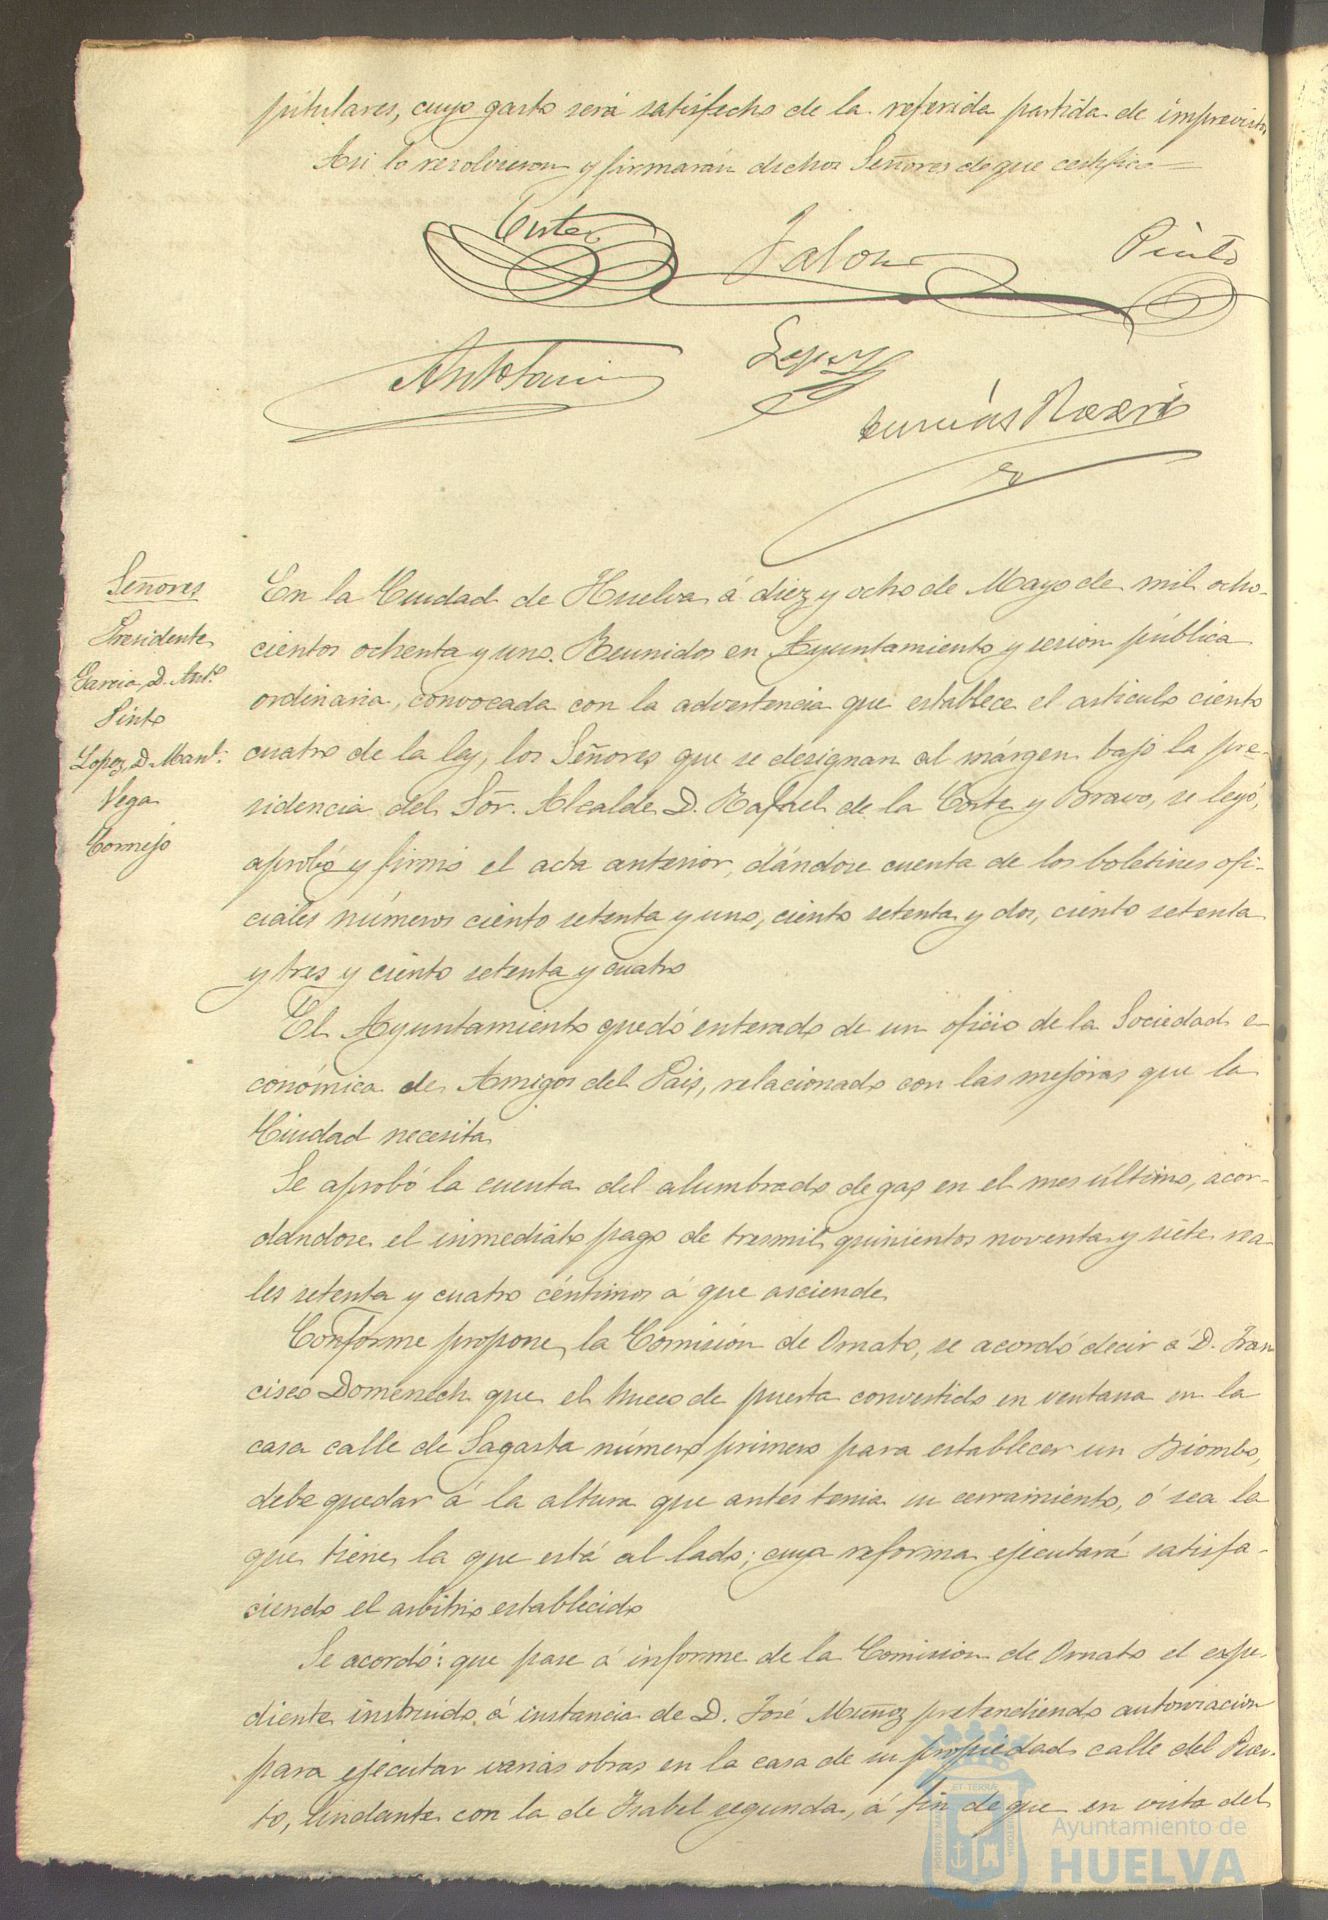 pitulares, cuyo gasto será satisfecho de la referida partida de imprevistos
Asi lo resolvieron y firmarán dichos Señores de que certifico=
Corte
Jalon
Pinto
Lopez
Señores
Presidente
Garcia D. Ant.º
Pinto
Lopez, D. Man.l
Vega
Cornejo
En la Ciudad de Huelva á diez y ocho de Mayo de mil ocho-
cientos ochenta y uno. Reunidos en Ayuntamiento y sesion pública
ordinaria, convocada con la advertencia que establece el articulo ciento
cuatro de la ley, los Señores que se designan al márgen bajo la pre-
sidencia del Sõr. Alcalde D. Rafael de la Corte y Bravo, se leyó,
aprobó y firmó el acta anterior, dándose cuenta de los boletines ofi-
ciales números ciento setenta y uno, ciento setenta y dos, ciento setenta
y tres y ciento setenta y cuatro
El Ayuntamiento quedó enterado de un oficio de la Sociedad e-
conómica de Amigos del Pais, relacionado con las mejoras que la
Ciudad necesita
Se aprobó la cuenta del alumbrado de gas en el mes último, acor-
dandose el inmediato pago de tresmil quinientos noventa y siete rea-
les setenta y cuatro céntimos á que asciende
Conforme propone la Comisión de Ornato, se acordó decir á D. Fran
cisco Domenech que el hueco de puerta convertido en ventana en la
casa calle de Sagasta número primero para establecer un Biombo,
debe quedar á la altura que antes tenia su cerramiento, ó sea la
que tiene la que está al lado; cuya reforma ejecutará satisfa-
ciendo el arbitrio establecido
Se acordó: que pase á informe de la Comision de Ornato el expe-
diente instruido á instancia de D. José Muñoz pretendiendo autorizacion
para ejecutar varias obras en la casa de su propiedad calle del Puer-
to, lindante con la de Isabel segunda, á fin de que en vista del
Ayuntamiento de
HUELVA